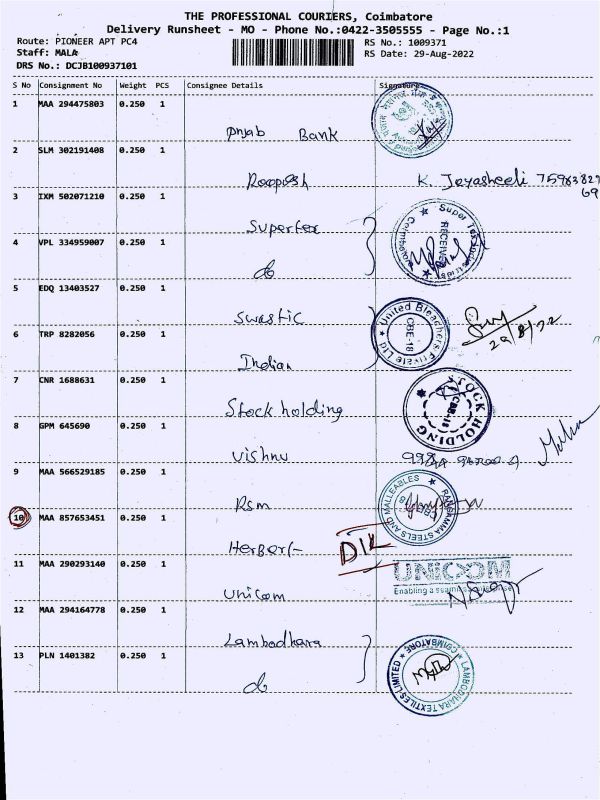 THE PROFESSIONAL COURIERS, Coimbatore
Delivery Runsheet - MO - Phone No.:0422-3505555 - Page No.:1
Route: PIONEER APT PC4 RS No.: 1009371
Staff: MALA RS Date: 29-Aug-2022
DRS No.: DCJB100937101
S No Consignment No Weight PCS Consignee Details Signature
1 MAA 294475803 0.250 1
Pnjab Bank
2 SLM 302191408 0.250 1
Roopesh K. Jeyasheeli
3 IXM 502071210 0.250 1
Supertex Super Tex Industries Coimbatore RECEIVED
4 VPL 334959007 0.250 1
do
5 EDQ 13403527 0.250 1
Swastic United Bleachers Private Ltd CBE-18
29/8/22
6 TRP 8282056 0.250 1
Indian
7 CNR 1688631 0.250 1
Stock holding STOCK HOLDING CBE-18
8 GPM 645690 0.250 1
Vishnu
9 MAA 566529185 0.250 1
Rsm RANGAMMA STEELS AND MALLEABLES
10 MAA 857653451 0.250 1
D/L
11 MAA 290293140 0.250 1
Unicom UNICOM
Enabling a
12 MAA 294164778 0.250 1
Lambodhara
13 PLN 1401382 0.250 1
do LAMBODHARA TEXTILES LIMITED COIMBATORE